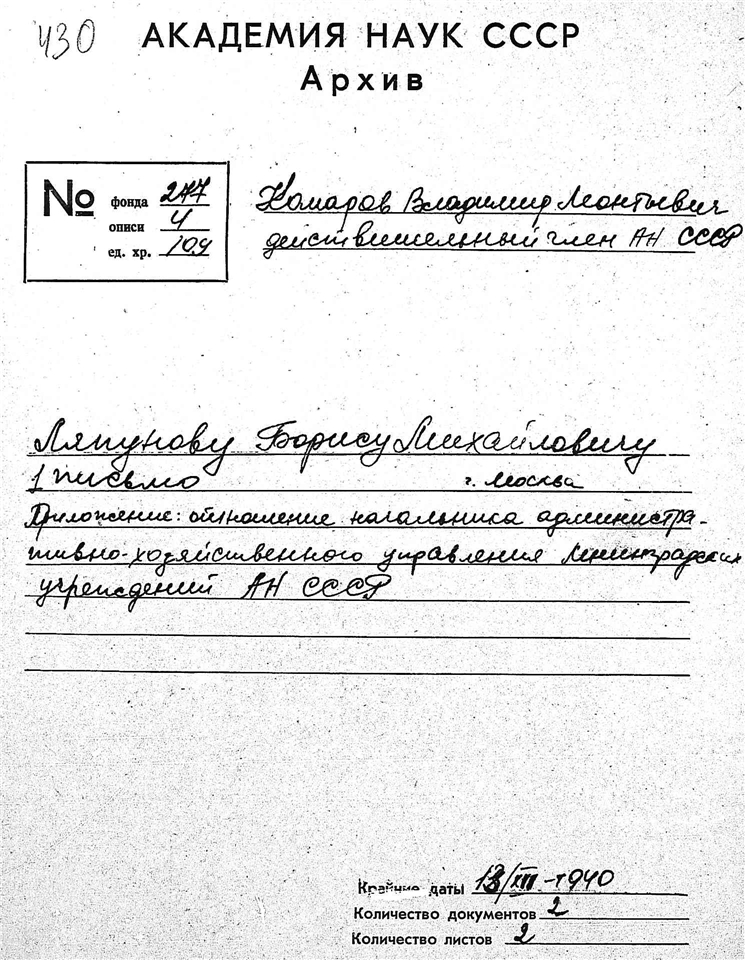 430
АКАДЕМИЯ НАУК СССР
Архив
№ фонда 277
описи 4
ед. хр. 109
Комаров Владимир Леонтьевич
действительный член АН СССР
Ляпунову Борису Михайловичу
1 письмо г. Москва
Приложение: отношение начальника администра-
тивно-хозяйственного управления Ленинградских
учреждений АН СССР
Крайние даты 13/XII-1940
Количество документов 2
Количество листов 2